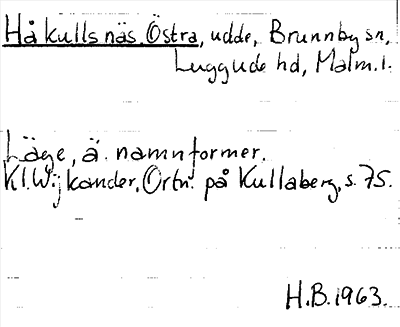 Håkulls näs, Östra, udde, Brunnby sn,
Luggude hd, Malm.l.
Läge, ä. namnformer.
Kl. Wijkander, Ortn. på Kullaberg, s. 75.
H.B. 1963.